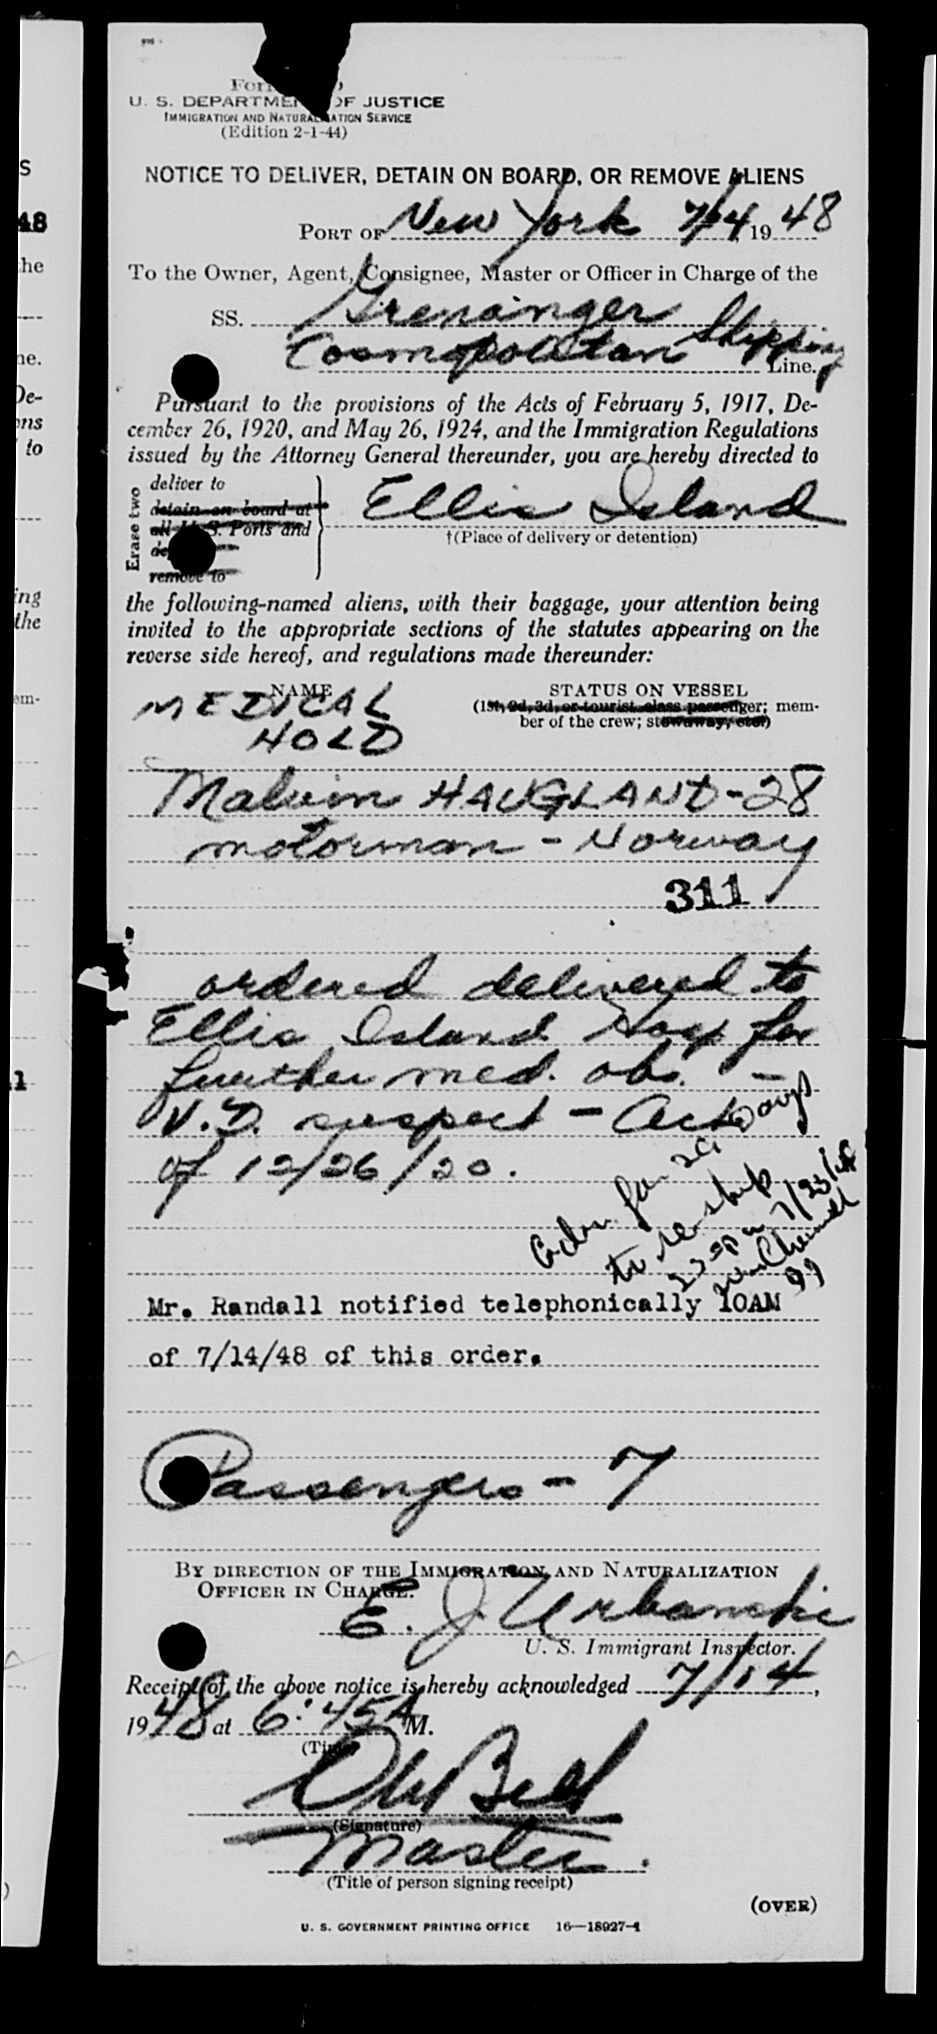 U. S. DEPARTMENT OF JUSTICE
IMMIGRATION AND NATURALIZATION SERVICE
(Edition 2-1-44)
NOTICE TO DELIVER, DETAIN ON BOARD, OR REMOVE ALIENS
PORT OF New York 7/14 1948
To the Owner, Agent, Consignee, Master or Officer in Charge of the
SS. Grenanger
Cosmopolitan Shipping Line.
Pursuant to the provisions of the Acts of February 5, 1917, De-
cember 26, 1920, and May 26, 1924, and the Immigration Regulations
issued by the Attorney General thereunder, you are hereby directed to
Erase two
deliver to
detain on board at
all U. S. Ports and
remove to
Ellis Island
†(Place of delivery or detention)
the following-named aliens, with their baggage, your attention being
invited to the appropriate sections of the statutes appearing on the
reverse side hereof, and regulations made thereunder:
NAME
STATUS ON VESSEL
(1st, 2d, 3d, or tourist class passenger; mem-
ber of the crew; stowaway, etc.)
MEDICAL
HOLD
Malvin HAUGLAND-28
motorman - Norway
311
ordered delivered to
Ellis Island Hosp for
further med. obs. -
V.D. suspect - Act
of 12/26/20.
Adm. for 29 days
to reship
7/23/48
Mr. Randall notified telephonically 10AM
of 7/14/48 of this order.
Passengers - 7
BY DIRECTION OF THE IMMIGRATION AND NATURALIZATION
OFFICER IN CHARGE.
E. J. Urbanski
U. S. Immigrant Inspector.
Receipt of the above notice is hereby acknowledged 7/14,
1948 at 6:45 A M.
(Time)
(Signature)
Master.
(Title of person signing receipt)
(OVER)
U. S. GOVERNMENT PRINTING OFFICE 16—18927-1